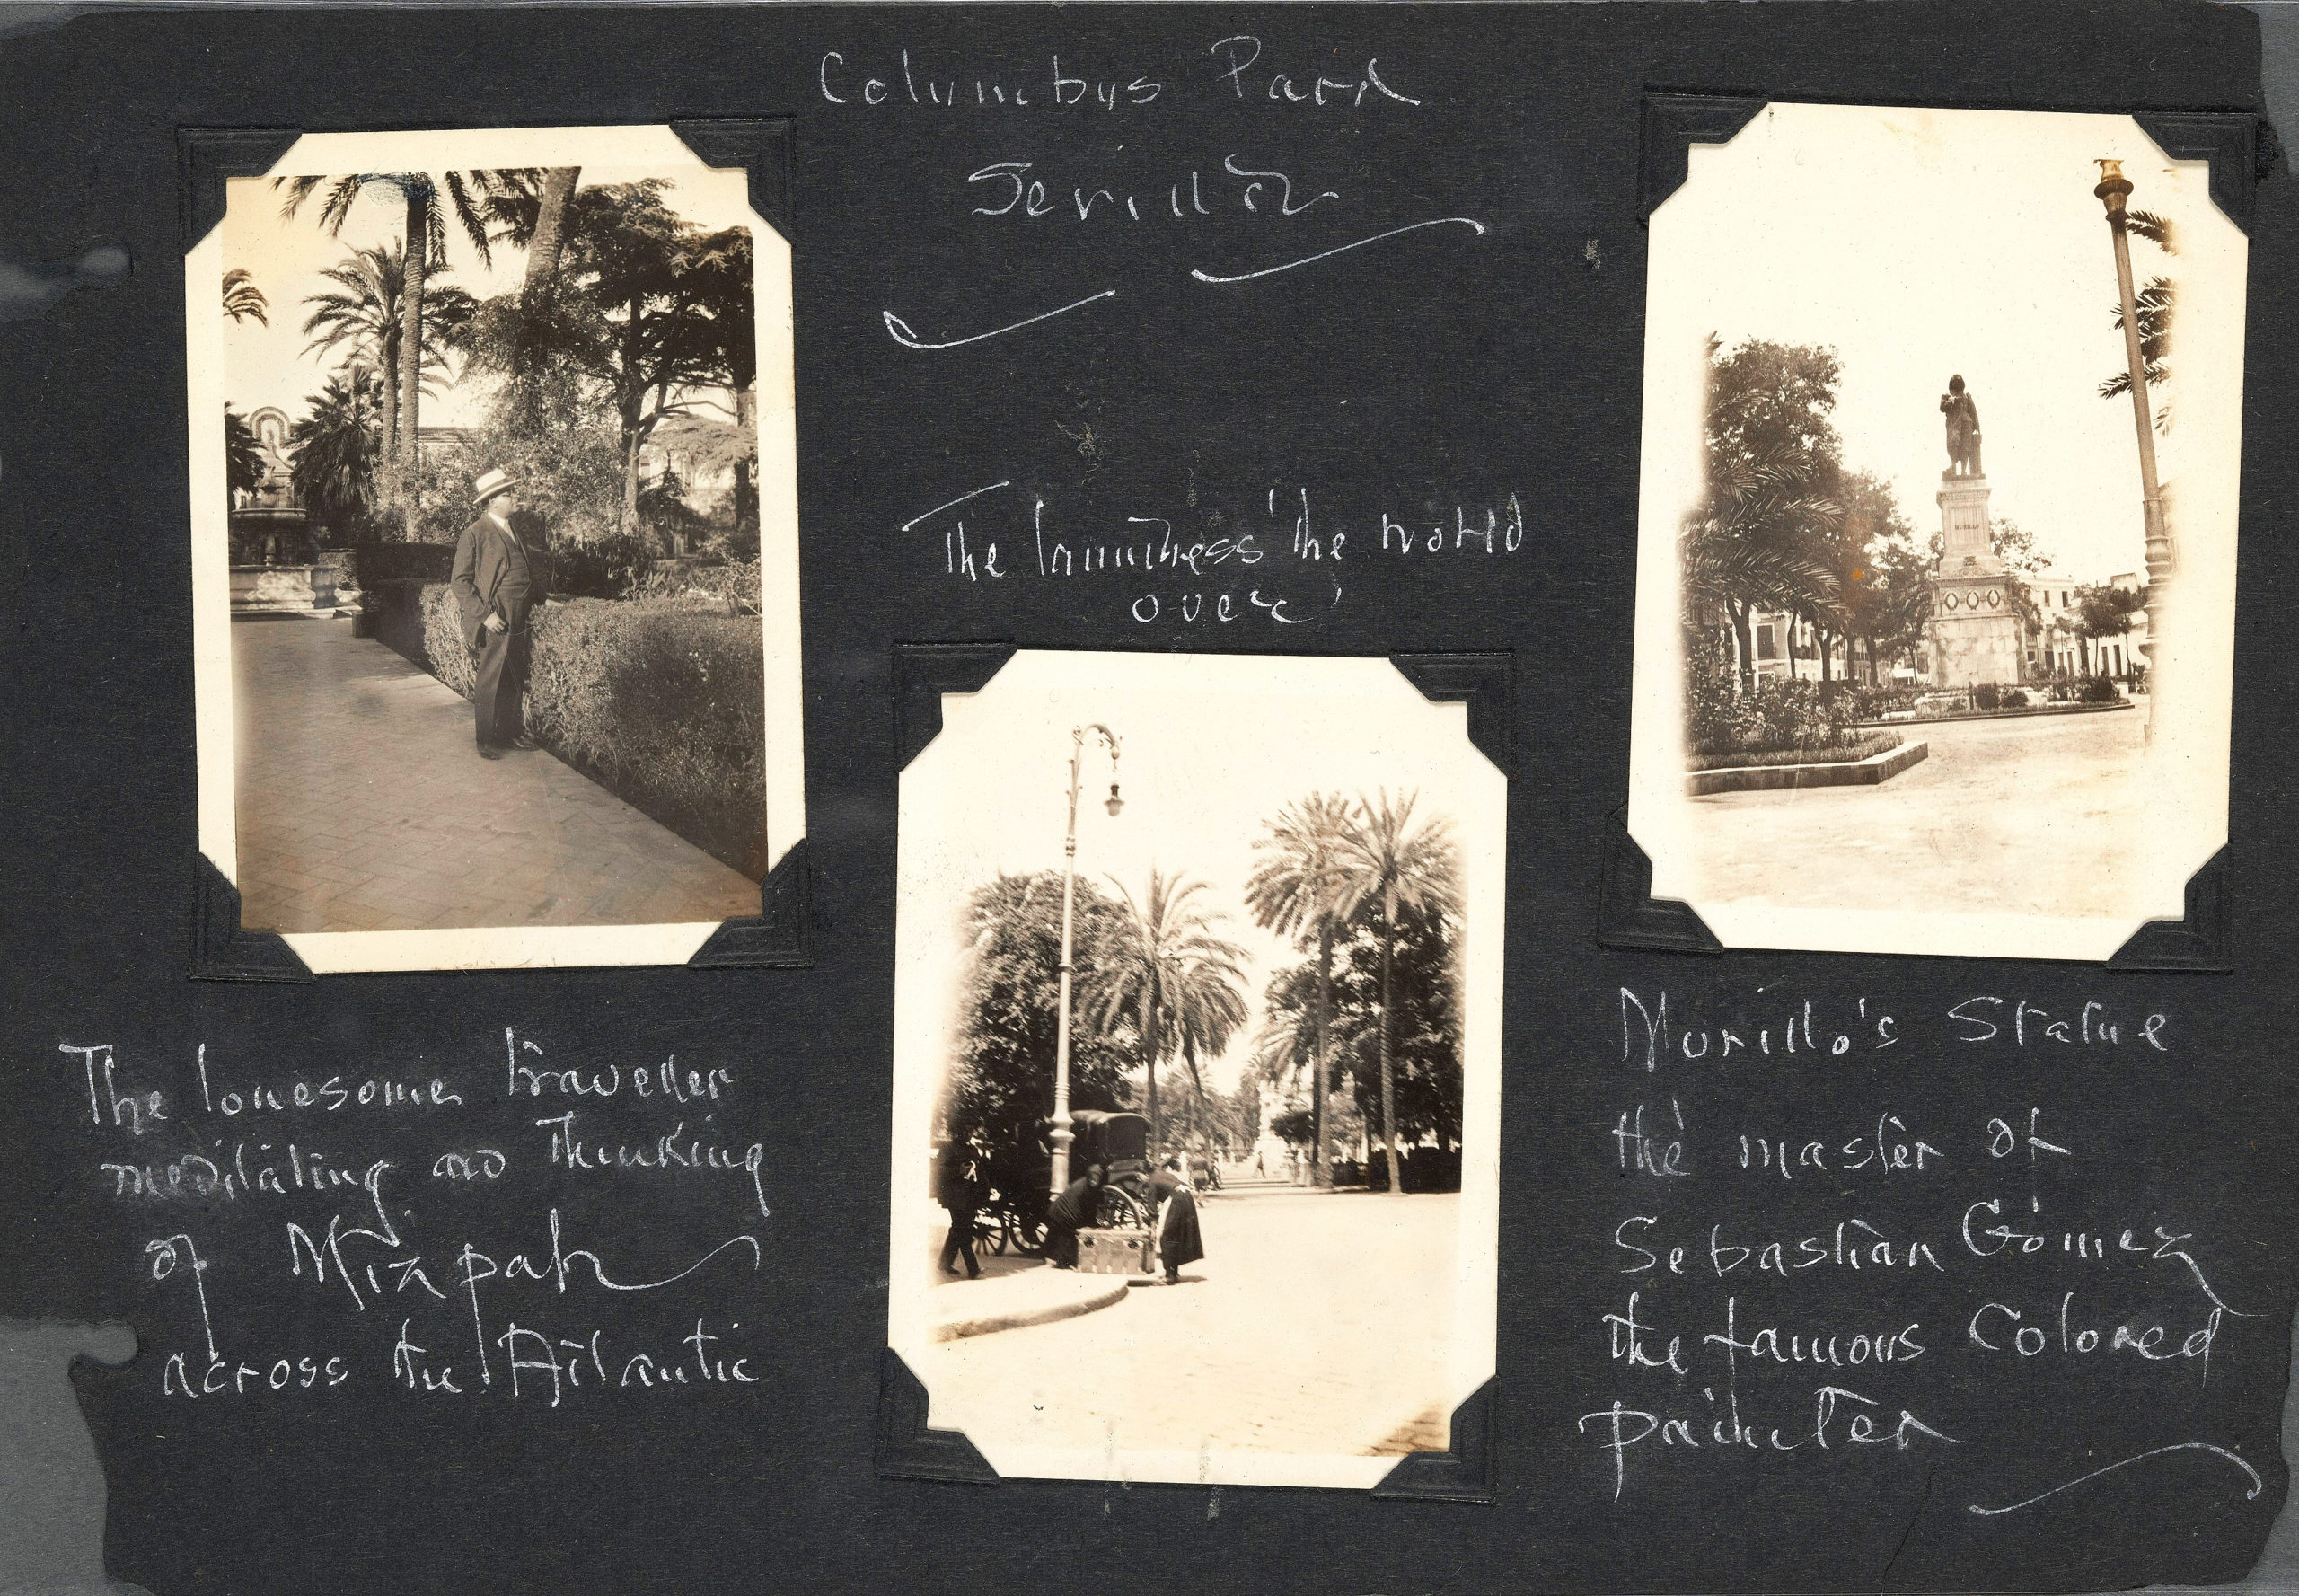 Columbus Park
Sevilla
The laundress the world
over
The lonesome traveller
meditating and thinking
of Mizpah
across the Atlantic
MURILLO
Murillo's Statue
the master of
Sebastian Gómez
the famous Colored
painter